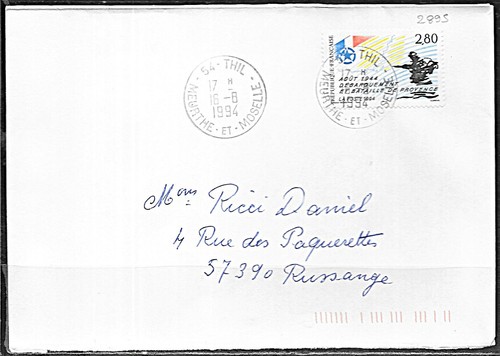 2895
2,80
RÉPUBLIQUE FRANÇAISE
AOÛT 1944
DÉBARQUEMENT
ET BATAILLE DE PROVENCE
LA POSTE 1994
54 - THIL
17 H
16 - 8
1994
MEURTHE - ET - MOSELLE
54 - THIL
17 H
1994
MEURTHE - ET - MOSELLE
Mons Ricci Daniel
4 Rue des Paquerettes
57390 Russange